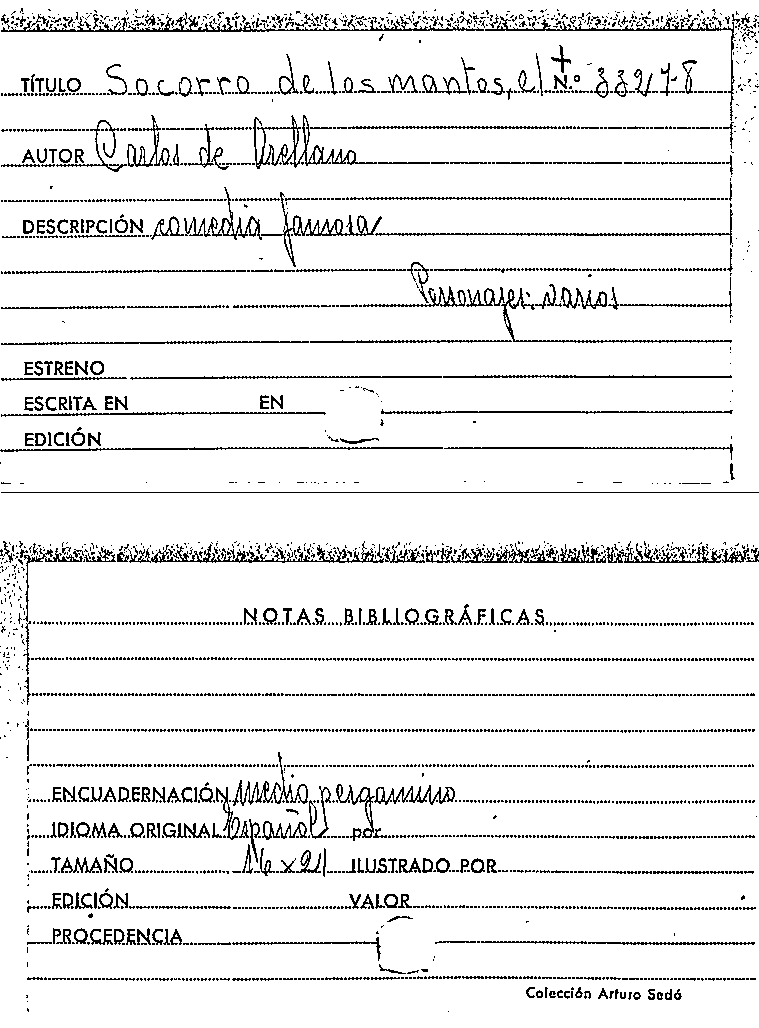 TÍTULO Socorro de los mantos, el + N.º 33217-8
AUTOR Carlos de Arellano
DESCRIPCIÓN comedia famosa
Personajes: varios
ESTRENO
ESCRITA EN EN
EDICIÓN
NOTAS BIBLIOGRÁFICAS
ENCUADERNACIÓN medio pergamino
IDIOMA ORIGINAL Español por
TAMAÑO 16 x 21 ILUSTRADO POR
EDICIÓN VALOR
PROCEDENCIA
Colección Arturo Sedó